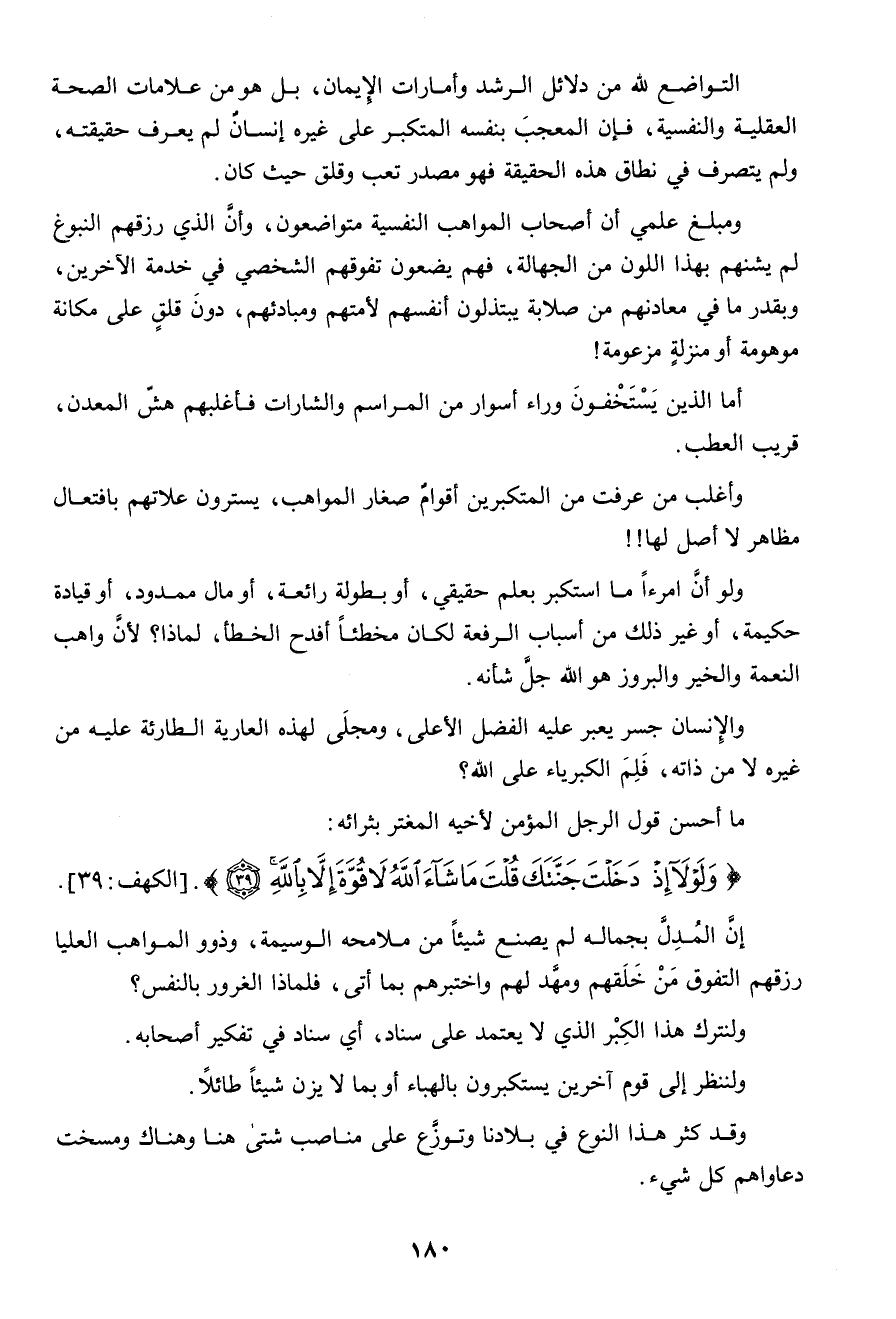 التواضع لله من دلائل الرشد وأمارات الإيمان، بل هو من علامات الصحة
العقلية والنفسية، فإن المعجبَ بنفسه المتكبر على غيره إنسانٌ لم يعرف حقيقته،
ولم يتصرف في نطاق هذه الحقيقة فهو مصدر تعب وقلق حيث كان.
ومبلغ علمي أن أصحاب المواهب النفسية متواضعون، وأنَّ الذي رزقهم النبوغ
لم يشنهم بهذا اللون من الجهالة، فهم يضعون تفوقهم الشخصي في خدمة الآخرين،
وبقدر ما في معادنهم من صلابة يبتذلون أنفسهم لأمتهم ومبادئهم، دونَ قلقٍ على مكانة
موهومة أو منزلةٍ مزعومة!
أما الذين يَسْتَخْفونَ وراء أسوار من المراسم والشارات فأغلبهم هشّ المعدن،
قريب العطب.
وأغلب من عرفت من المتكبرين أقوامٌ صغار المواهب، يسترون علاتهم بافتعال
مظاهر لا أصل لها!!
ولو أنَّ امرءاً ما استكبر بعلم حقيقي، أو بطولة رائعة، أو مال ممدود، أو قيادة
حكيمة، أو غير ذلك من أسباب الرفعة لكان مخطئاً أفدح الخطأ، لماذا؟ لأنَّ واهب
النعمة والخير والبروز هو الله جلَّ شأنه.
والإنسان جسر يعبر عليه الفضل الأعلى، ومجلَى لهذه العارية الطارئة عليه من
غيره لا من ذاته، فَلِمَ الكبرياء على الله؟
ما أحسن قول الرجل المؤمن لأخيه المغتر بثرائه:
﴿ وَلَوْلَآ إِذْ دَخَلْتَ جَنَّتَكَ قُلْتَ مَا شَآءَ ٱللَّهُ لَا قُوَّةَ إِلَّا بِٱللَّهِ ۚ ٣٩ ﴾. [الكهف: ٣٩].
إنَّ المُدِلَّ بجماله لم يصنع شيئاً من ملامحه الوسيمة، وذوو المواهب العليا
رزقهم التفوق مَنْ خَلَقهم ومهَّد لهم واختبرهم بما أتى، فلماذا الغرور بالنفس؟
ولنترك هذا الكِبْر الذي لا يعتمد على سناد، أي سناد في تفكير أصحابه.
ولننظر إلى قوم آخرين يستكبرون بالهباء أو بما لا يزن شيئاً طائلاً.
وقد كثر هذا النوع في بلادنا وتوزَّع على مناصب شتىٰ هنا وهناك ومسخت
دعاواهم كل شيء.
١٨٠